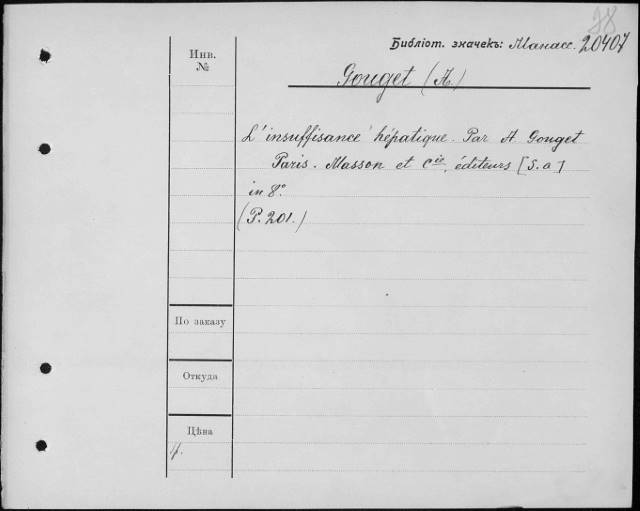 28
Библіот. значекъ: Манасс. 20407
Инв.
№
Gouget (A.)
L'insuffisance hépatique. Par A. Gouget
Paris. Masson et Cie, éditeurs [S. a.]
in 8°.
(P. 201.)
По заказу
Откуда
Цѣна
4.